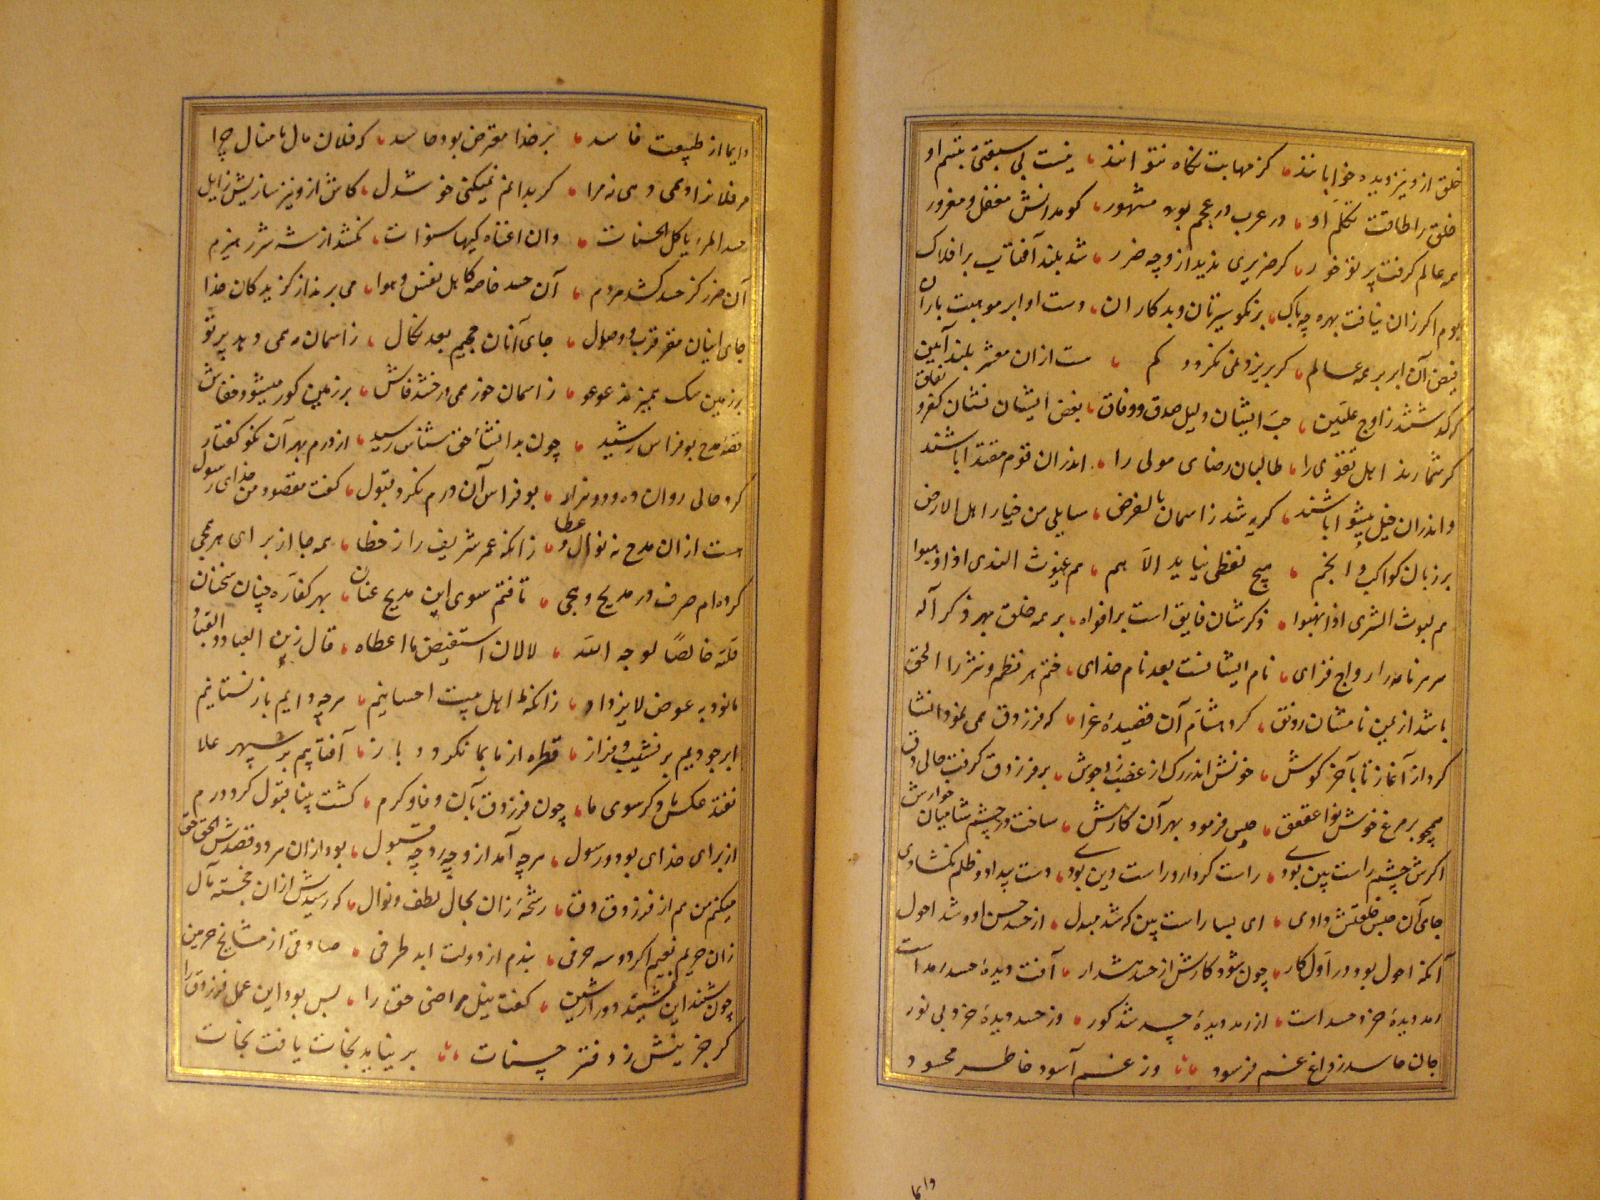 خلق ازو نیز دیده خوابانند کز مهابت نگاه نتوانند نیست بی سبقتی تبسم او
خلق را طاقت تکلم او در عرب در عجم بود مشهور کو مدانش مغفل و مغرور
همه عالم گرفت پرتو خور گر ضریری ندید ازو چه ضرر شد بلند آفتاب بر افلاک
بوم اگر زان نیافت بهره چه باک بر نکو سیرتان و بدکاران دست او ابر موهبت باران
فیض آن ابر بر همه عالم گر بریزد نمی نگردد کم هست ازان معشر بلند آیین
که گذشتند ز اوج علیین حب ایشان دلیل صدق و وفاق بغض ایشان نشان کفر و نفاق
گر شمارند اهل تقوی را طالبان رضای مولی را اندران قوم مقتدا باشند
و اندران خیل پیشوا باشند گر بپرسد ز آسمان بالفرض سایلی من خیار اهل الارض
بر زبان کواکب و انجم هیچ لفظی نیاید الا هم هم غیوث الندی اذا وهبوا
هم لیوث الشری اذا نهبوا ذکرشان فایق است بر افواه بر همه خلق بعد ذکر آله
سر هر نامه را رواج فزای نام ایشانست بعد نام خدای ختم هر نظم و نثر را الحق
باشد از یمن نامشان رونق کرد هشام آن قصیده غرا که فرزدق همی نمود انشا
کرد از آغاز تا بآخر گوش خونش اندر رگ از غضب زد جوش بر فرزدق گرفت حالی دق
همچو بر مرغ خوش نوا عقعق حبس فرمود بهر آن کارش ساخت در چشم شامیان خوارش
اگرش چشم راست بین بودی راست کردار و راست دین بودی دست بیداد و ظلم نگشادی
جای آن حبس خلعتش دادی ای بسا راست بین که شد مبدل از حسد حس او و شد احول
آنکه احول بود در اول کار چون شود کارش از حسد هشدار آفت دیده حسد رمد است
رمد دیده خرد حسد است از رمد دیده حسد شد کور وز حسد دیده خرد بی نور
جان حاسد ز داغ غم فرسود وز غم آسود خاطر محسود
دایما
دایما از طبیعت فاسد بر خدا معترض بود حاسد که فلان مال یا منال چرا
مر فلان را دهی دهی نه مرا گر بدانم نمیکنی خوشدل کاش ازو نیز سازیش زایل
حسد المرء یاکل الحسنات وان اعتاد کیها سنوات نکشد از شه شرر هیزم
آن ضرر کز حسد کشد مردم آن حسد خاصه کاهل نفس و هوا می برند از گزیدگان خدا
جای اینان مقر قرب و وصول جای آنان جحیم بعد نکال ز آسمان مه همی دهد پرتو
بر زمین سگ همی زند عوعو ز آسمان خور همی درخشد فاش بر زمین کور میشود خفاش
قصه مدح بوفراس رشید چون بدانشاه حق شناس رسید از درم بهر آن نکو گفتار
کرد حالی روان ده و دو هزار بو فراس آن درم نکرد قبول گفت مقصود من خدای و رسول
هست ازان مدح نه نوال و عطا زانکه عمر شریف را ز خطا همه جا از برای هر همجی
کرده ام صرف در مدیح و هجی تافتم سوی این مدیح عنان بهر کفاره چنان سخنان
قلته خالصا لوجه الله لا لان استفیض ما اعطاه قال زین العباد و العباد
ما نودیه عوض لا یزداد زانکه ما اهل بیت احسانیم هر چه دادیم باز نستانیم
ابر جودیم بر نشیب و فراز قطره از ما بما نگردد باز آفتابیم بر سپهر علا
نفتد عکس ما دگر سوی ما چون فرزدق بآن وفا و کرم گشت بینا قبول کرد درم
از برای خدای بود و رسول هر چه آمد ازو چه رد چه قبول بود ازان هر دو قصدش الحق حق
میکنم من هم از فرزدق دق رشحه زان بحال لطف و نوال که رسیدش ازان خجسته مآل
زان حریم نعیم اگر دو سه حرفی بندم از دولت ابد طرفی صادقی از مشایخ حرمین
چون شنید این نشید دور از شین گفت نیل مراضی حق را بس بود این عمل فرزدق را
گر جز اینش ز دفتر حسنات بر نیاید نجات یافت نجات